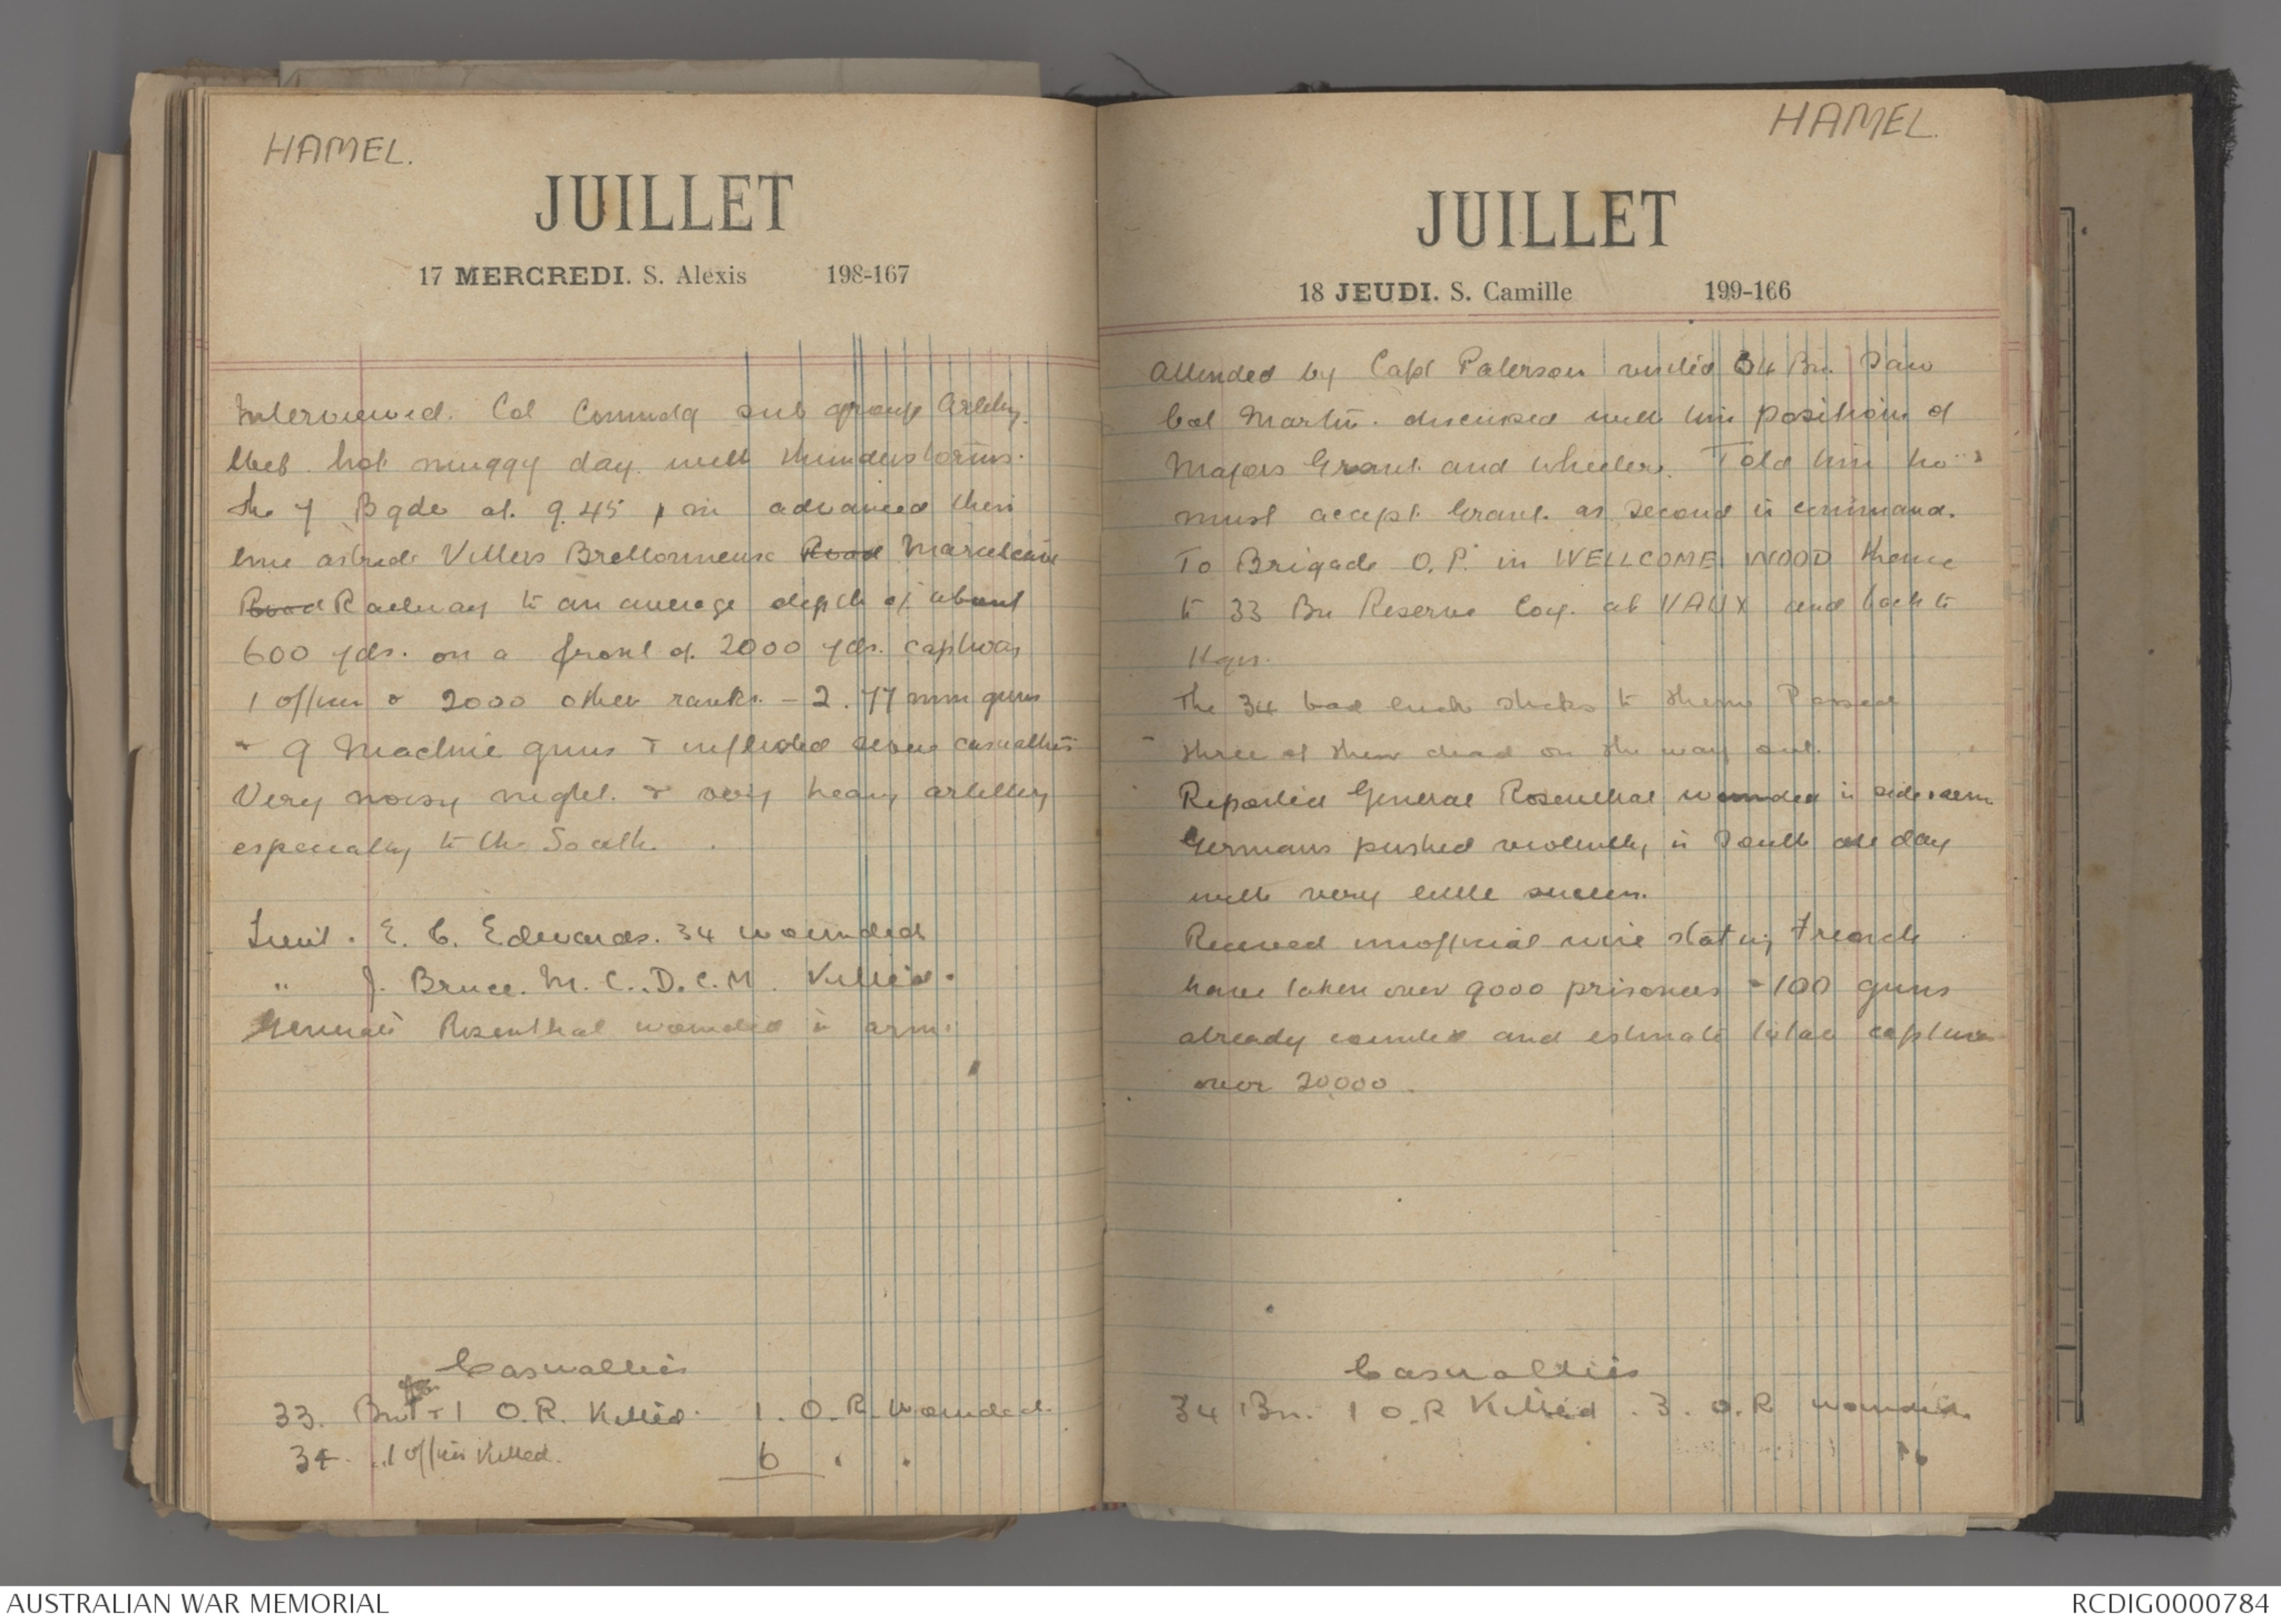 HAMEL.
JUILLET
17 MERCREDI. S. Alexis 198-167
Interviewed. Col Commdg sub group Artlly.
hot muggy day. with thunderstorms.
the 7 Bgde at. 9.45 pm advanced their
line astride Villers Brettonneux Road Marcelcave
Road Railway to an average depth of about
600 yds. on a front of 2000 yds. capturing
1 officer & 2000 other ranks. - 2. 77 mm guns
+ 9 Machine guns & inflicted severe casualties
Very noisy night. & very heavy artillery
especially to the South.
Lieut. E. C. Edwards. 34 wounded
" J. Bruce. M.C., D.C.M. Killed.
General Rosenthal wounded in arm.
Casualties
33. Bn 1 + 1 O.R. Killed. 1. O.R. Wounded.
34. " 1 officer Killed. 6 " "
HAMEL.
JUILLET
18 JEUDI. S. Camille 199-166
Attended by Capt Paterson visited 34 Bn. Saw
Col Martin. discussed with him position of
Majors Grant and Wheeler. Told him he
must accept Grant. as second in command.
To Brigade O.P. in WELLCOME WOOD thence
to 33 Bn Reserve Coy. at VAUX and back to
Hqrs.
The 34 bad luck sticks to them Passed
three of them dead on the way out.
Reported General Rosenthal wounded in side & arm.
Germans pushed violently in South all day
with very little success.
Received unofficial wire stating French
have taken over 9000 prisoners - 100 guns
already counted and estimate total captures
over 20,000.
Casualties
34 Bn. 1 O.R Killed. 3. O.R wounded.
AUSTRALIAN WAR MEMORIAL
RCDIG0000784